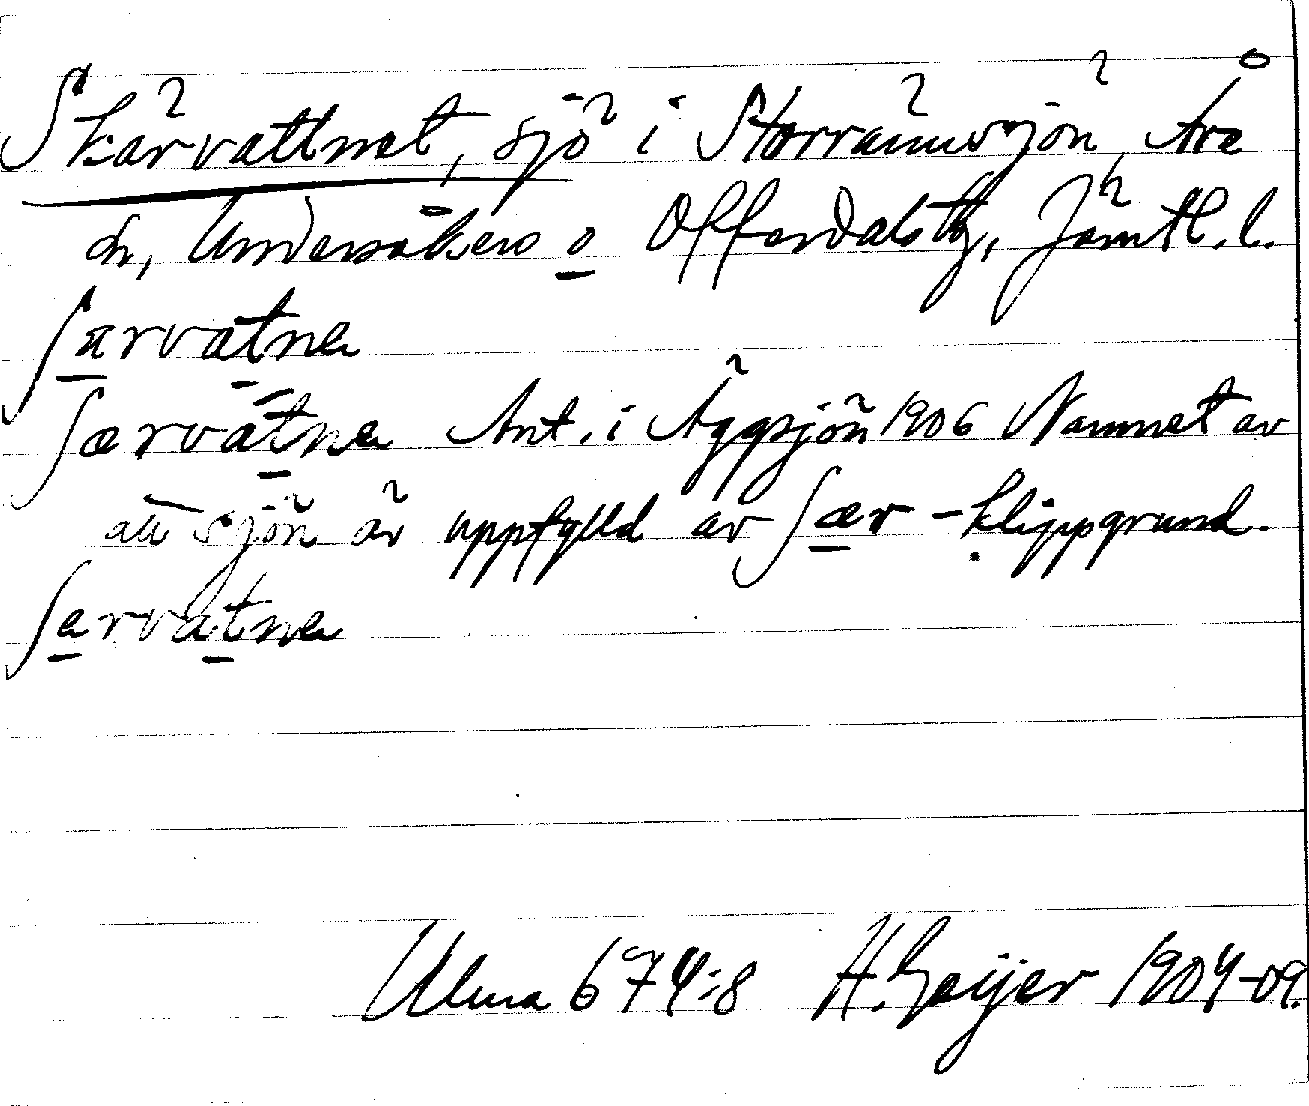 Skärvattnet, sjö i Storrännsjön, Åre
sn, Undersåkers o Offerdals tg, Jämtl. l.
ʃærvatne
ʃærvatne Ant. i Äggsjön 1906 Namnet av
att sjön är uppfylld av ʃær - klippgrund.
ʃervatne
Uluna 674:8 H. Geijer 1904-09.